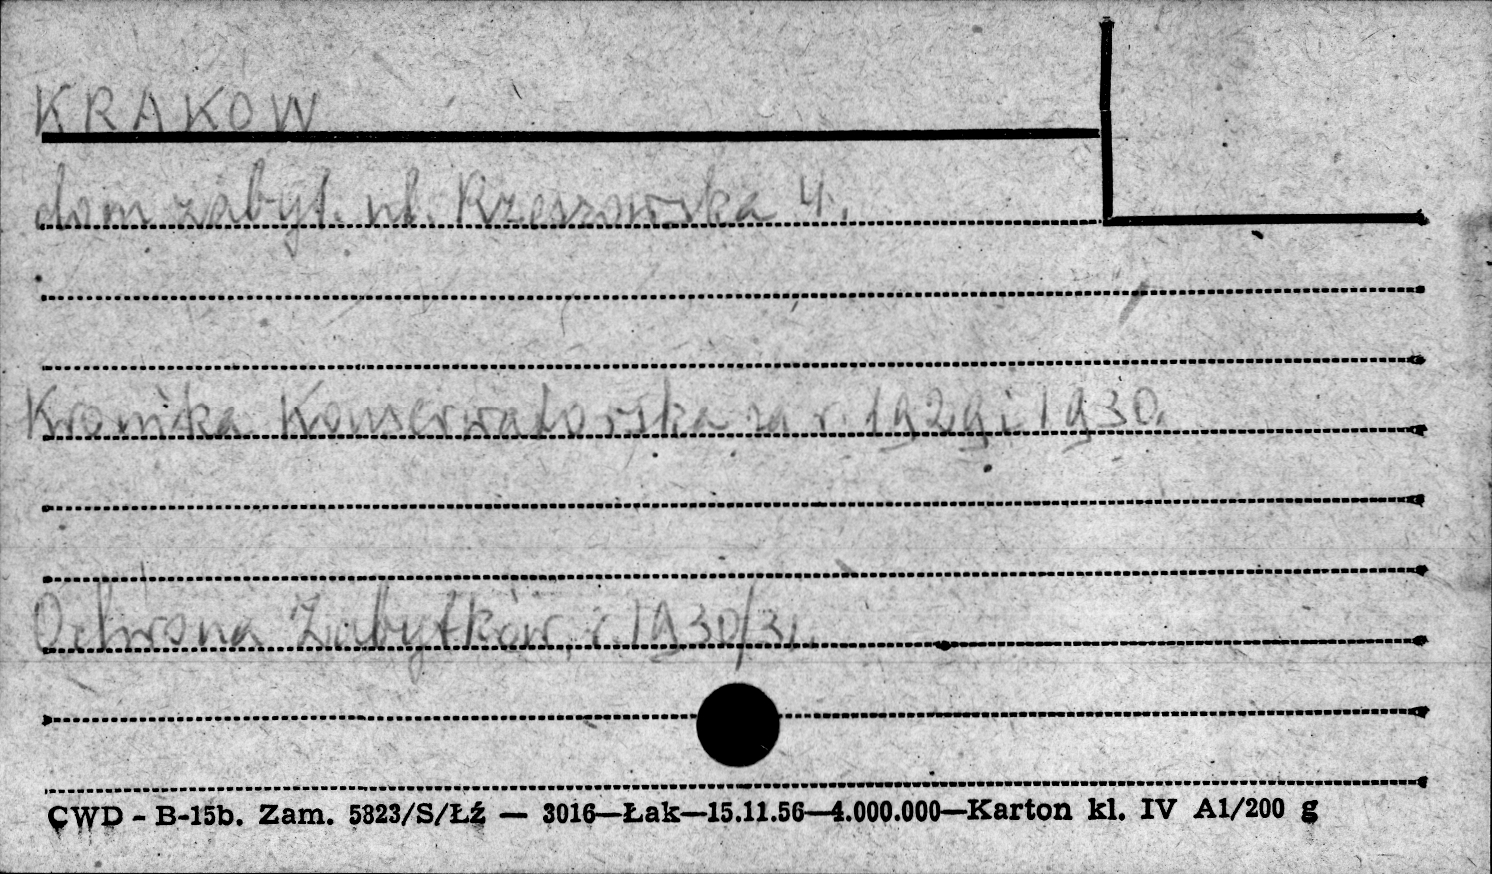 KRAKOW
dom zabyt. ul. Rzeszowska 4.
Kronika Konserwatorska za r. 1929 i 1930.
Ochrona Zabytków, r. 1930/31.
CWD - B-15b. Zam. 5823/S/Łź — 3016—Łak—15.11.56—4.000.000—Karton kl. IV A1/200 g